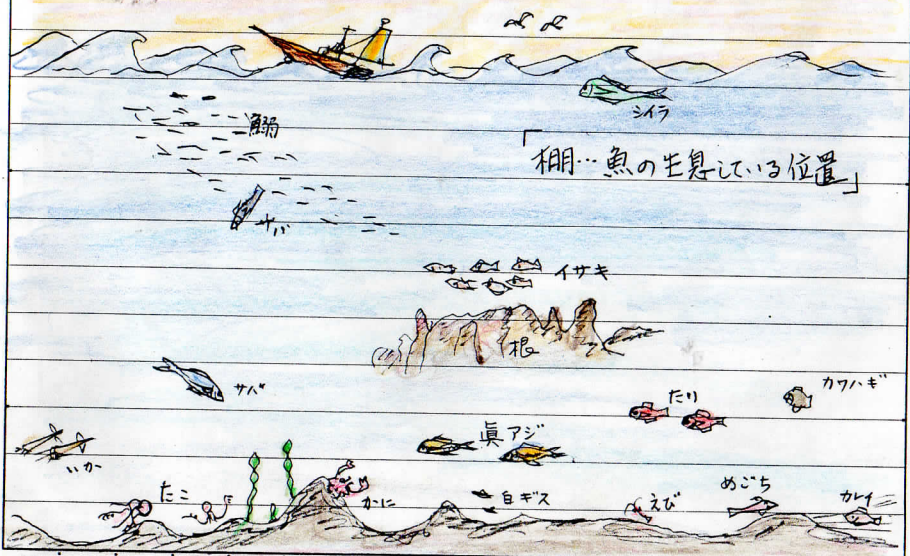 シイラ
鰯
「棚…魚の生息している位置」
サバ
イサキ
根
サバ
カワハギ
たい
眞アジ
いか
たこ
かに
白ギス
えび
めごち
カレイ